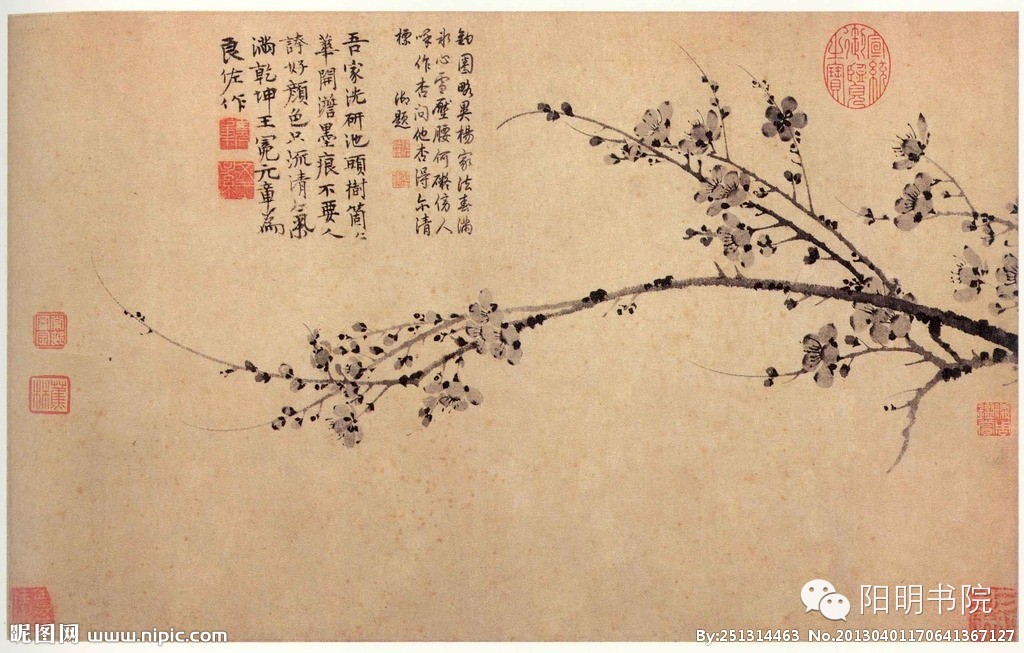 宣統御覽之寶
鉤圈略異楊家法春滿
冰心雪壓腰何礙傍人
呼作杏問他杏得尒清
標
御題
吾家洗研池頭樹箇〻
華開澹墨痕不要人
誇好顏色只流清氣
滿乾坤王冕元章為
良佐作
蕉林
阳明书院
昵图网 www.nipic.com
By:251314463 No.20130401170641367127